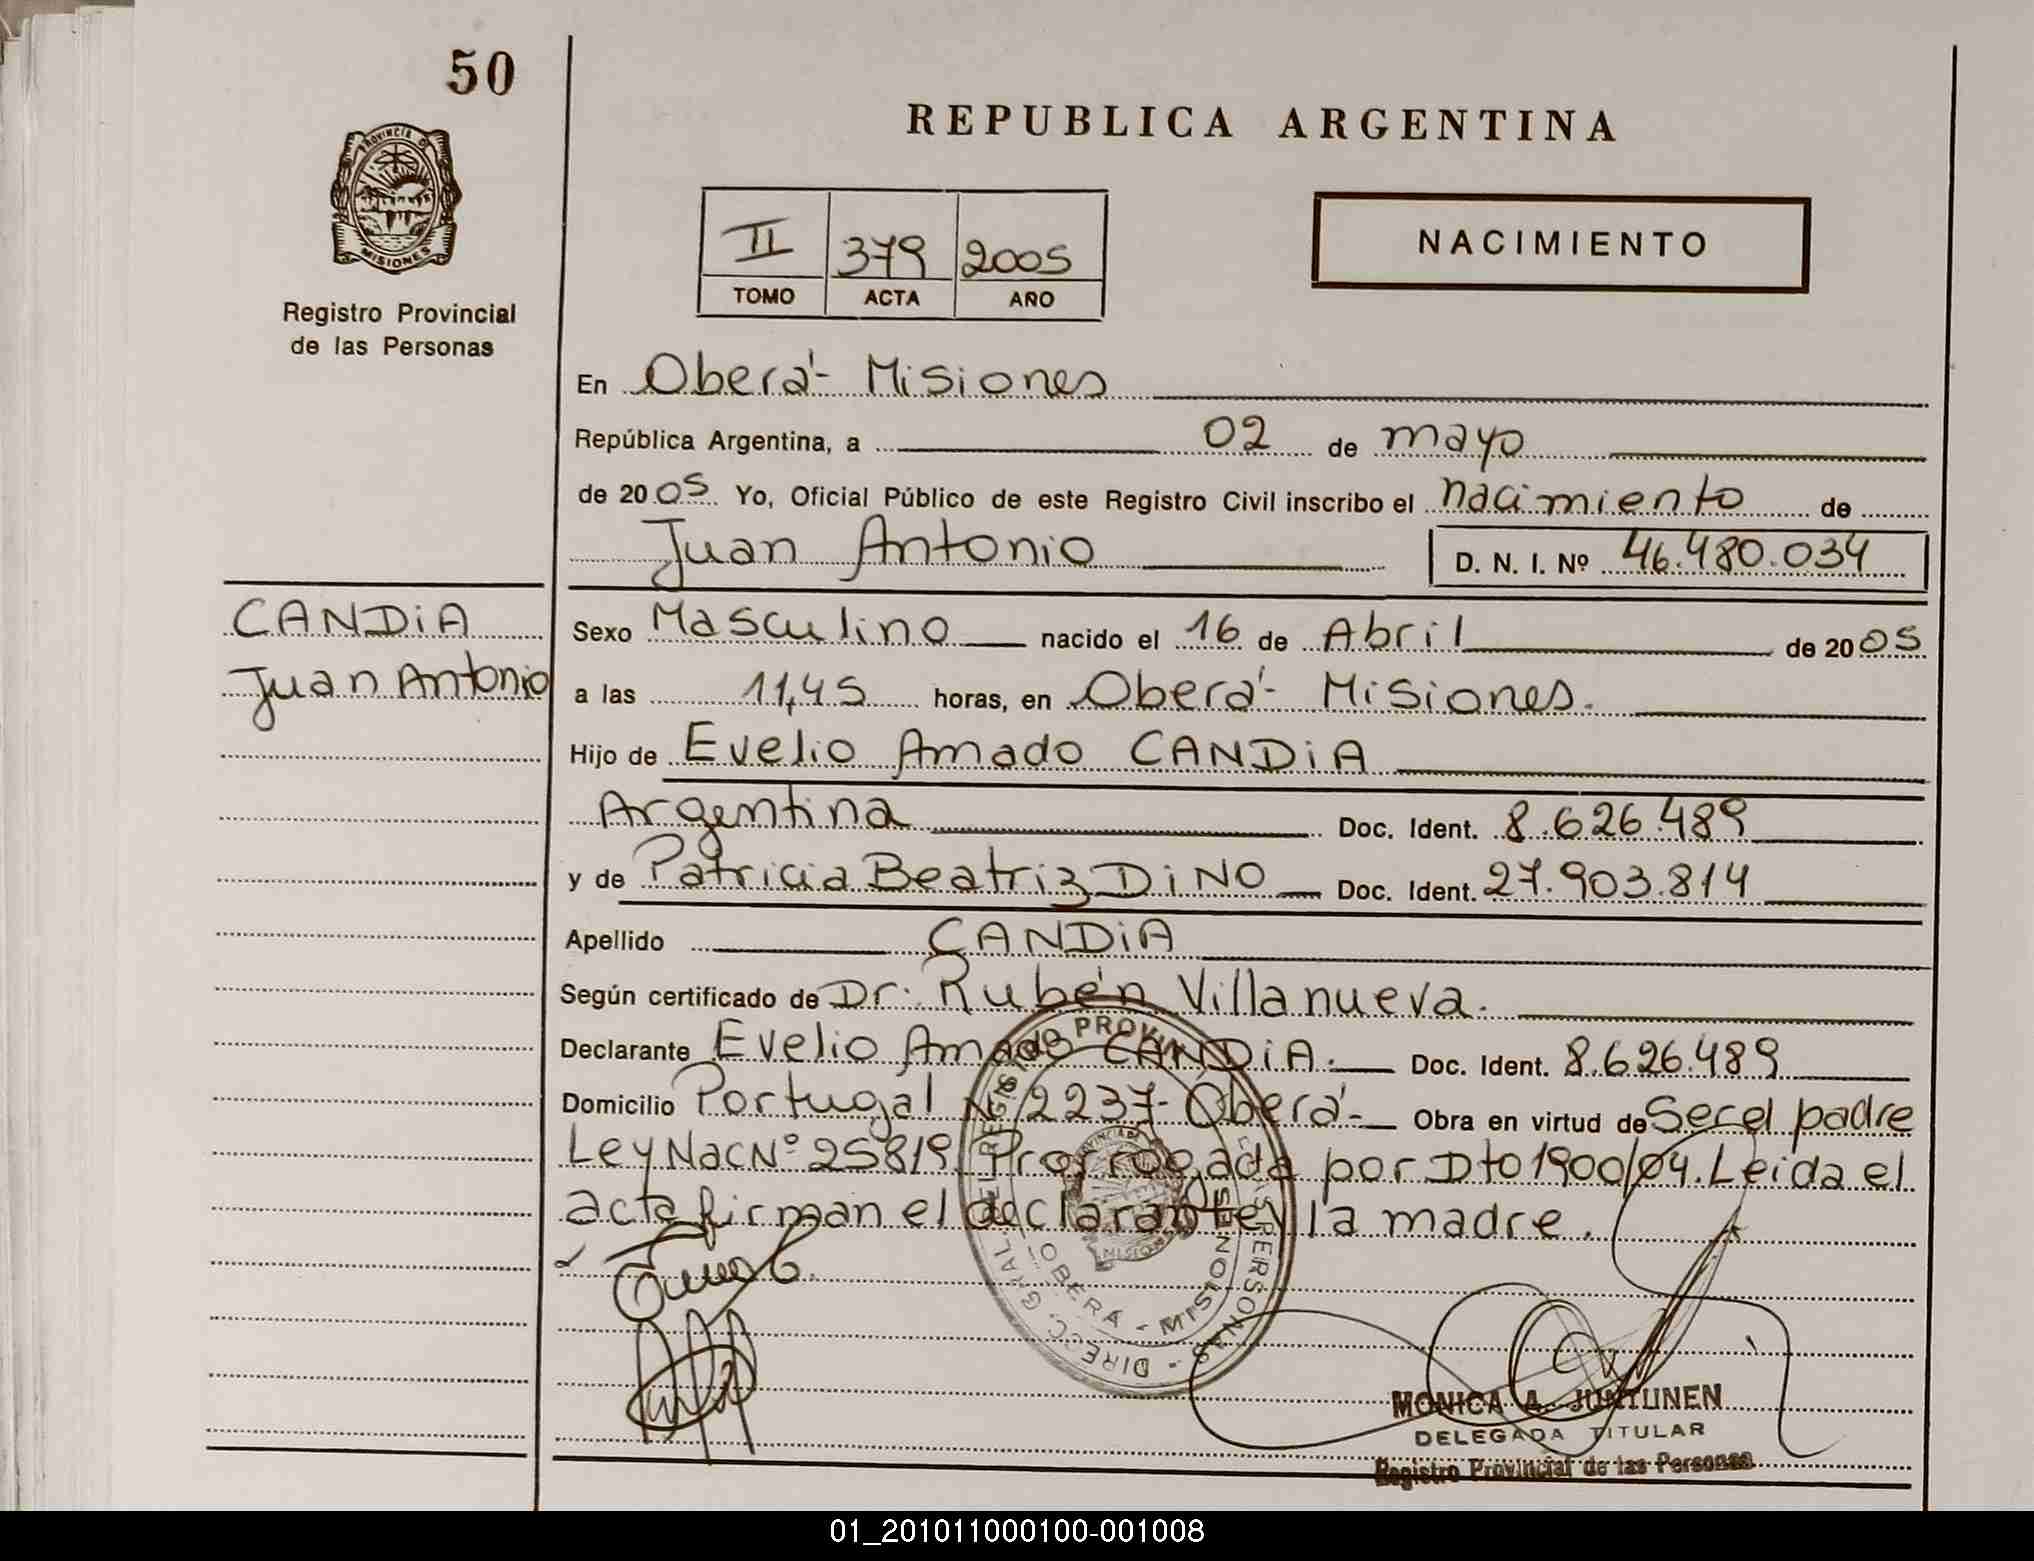 50
REPUBLICA ARGENTINA
PROVINCIA DE
MISIONES
Registro Provincial
de las Personas
II 379 2005
TOMO ACTA AÑO
NACIMIENTO
En Oberá - Misiones
República Argentina, a 02 de mayo
de 2005 Yo, Oficial Público de este Registro Civil inscribo el nacimiento de
Juan Antonio D. N. I. Nº 46.480.034
CANDiA
Juan Antonio
Sexo Masculino nacido el 16 de Abril de 2005
a las 11,45 horas, en Oberá - Misiones.
Hijo de Evelio Amado CANDiA
Argentina Doc. Ident. 8.626.489
y de Patricia Beatriz DiNO Doc. Ident. 27.903.814
Apellido CANDiA
Según certificado de Dr. Rubén Villanueva.
Declarante Evelio Amado CANDiA. Doc. Ident. 8.626.489
Domicilio Portugal Nº 2237 - Oberá - Obra en virtud de Ser el padre
Ley Nac Nº 25819 Prorrogada por Dto 1900/04. Leida el
acta firman el declarante y la madre.
DIRECC. GRAL. DEL REGISTRO PROVINCIAL PERSONAS
OBERA - MISIONES
MONICA A. JUNTUNEN
DELEGADA TITULAR
Registro Provincial de las Personas
01_201011000100-001008